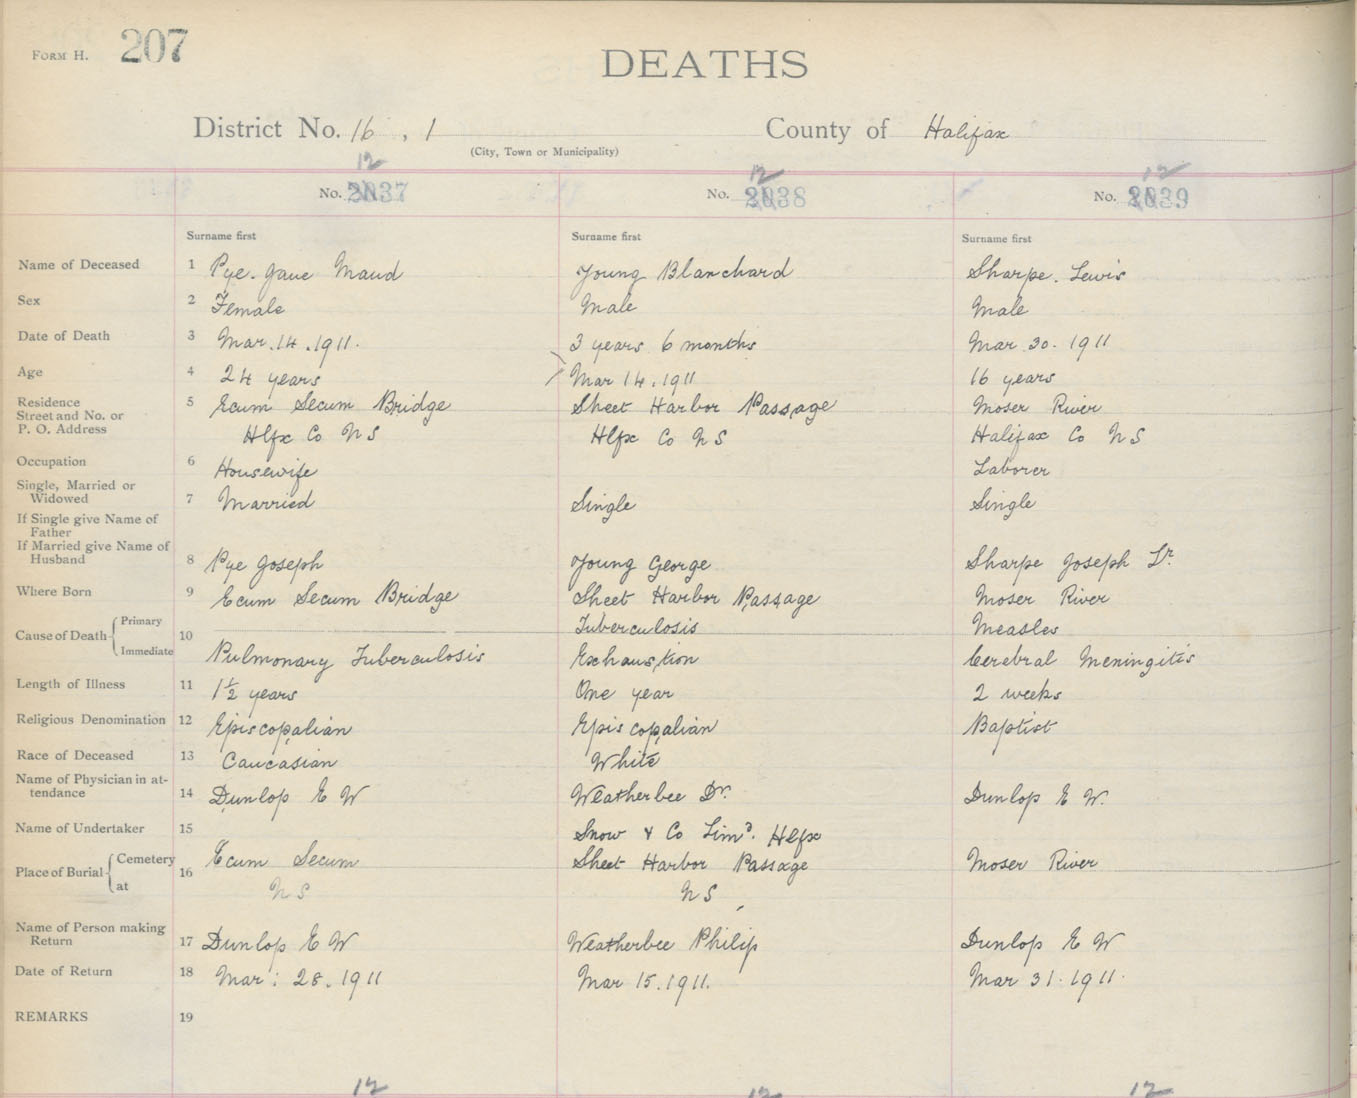 FORM H. 207
DEATHS
District No. 16, 1 County of Halifax
(City, Town or Municipality)
12 12 12
No. 2037 No. 2038 No. 2039
Surname first Surname first Surname first
Name of Deceased 1 Pye. Jane Maud Young Blanchard Sharpe. Lewis
Sex 2 Female Male Male
Date of Death 3 Mar. 14. 1911. 3 years 6 months Mar 30. 1911
Age 4 24 years Mar 14. 1911 16 years
Residence 5 Ecum Secum Bridge Sheet Harbor Passage Moser River
Street and No. or
P. O. Address Hlfx Co N S Hlfx Co N S Halifax Co N S
Occupation 6 Housewife Laborer
Single, Married or
Widowed 7 Married Single Single
If Single give Name of
Father
If Married give Name of
Husband 8 Pye Joseph Young George Sharpe Joseph Sr.
Where Born 9 Ecum Secum Bridge Sheet Harbor Passage Moser River
Primary Tuberculosis Measles
Cause of Death 10
Immediate Pulmonary Tuberculosis Exhaustion Cerebral Meningitis
Length of Illness 11 1½ years One year 2 weeks
Religious Denomination 12 Episcopalian Episcopalian Baptist
Race of Deceased 13 Caucasian White
Name of Physician in at-
tendance 14 Dunlop E W Weatherbee Dr. Dunlop E W.
Name of Undertaker 15 Snow & Co Limd. Hlfx
Cemetery Ecum Secum Sheet Harbor Passage Moser River
Place of Burial 16
at N S N S
Name of Person making
Return 17 Dunlop E W Weatherbee Philip Dunlop E W
Date of Return 18 Mar: 28. 1911 Mar 15. 1911. Mar 31. 1911.
REMARKS 19
12 12 12